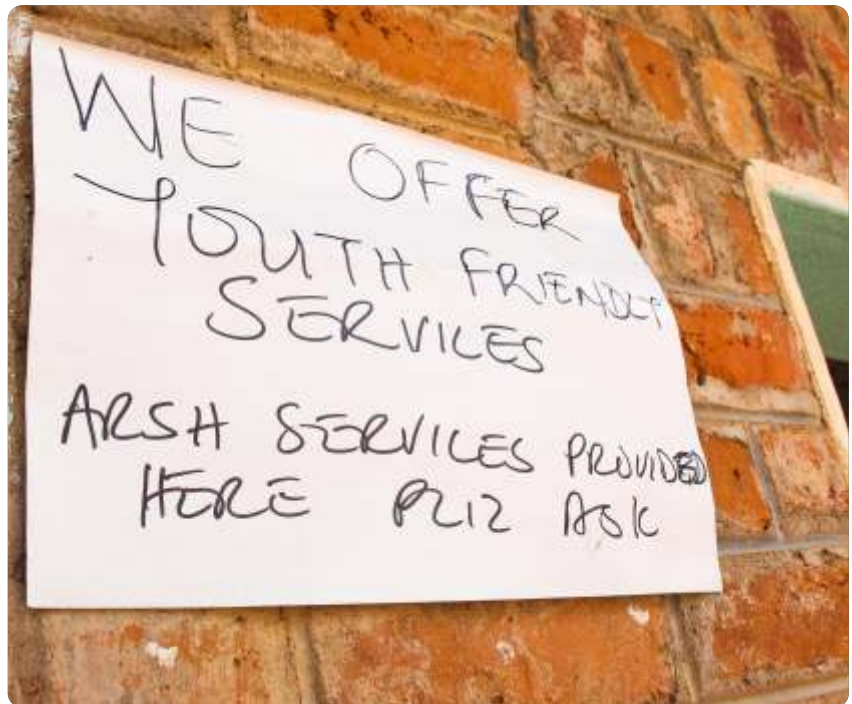 WE OFFER
YOUTH FRIENDLY
SERVICES
ARSH SERVICES PROVIDED
HERE PLIZ ASK